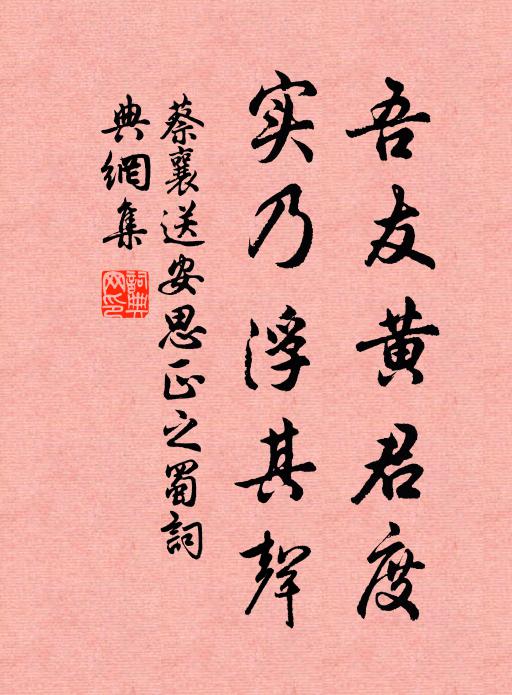 吾友黄君度
实乃浮其聲
蔡襄送安思正之蜀詞
典網集
詞典网印